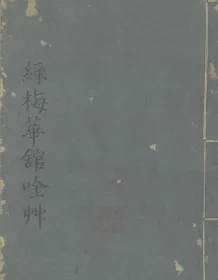 綠梅華館唫艸